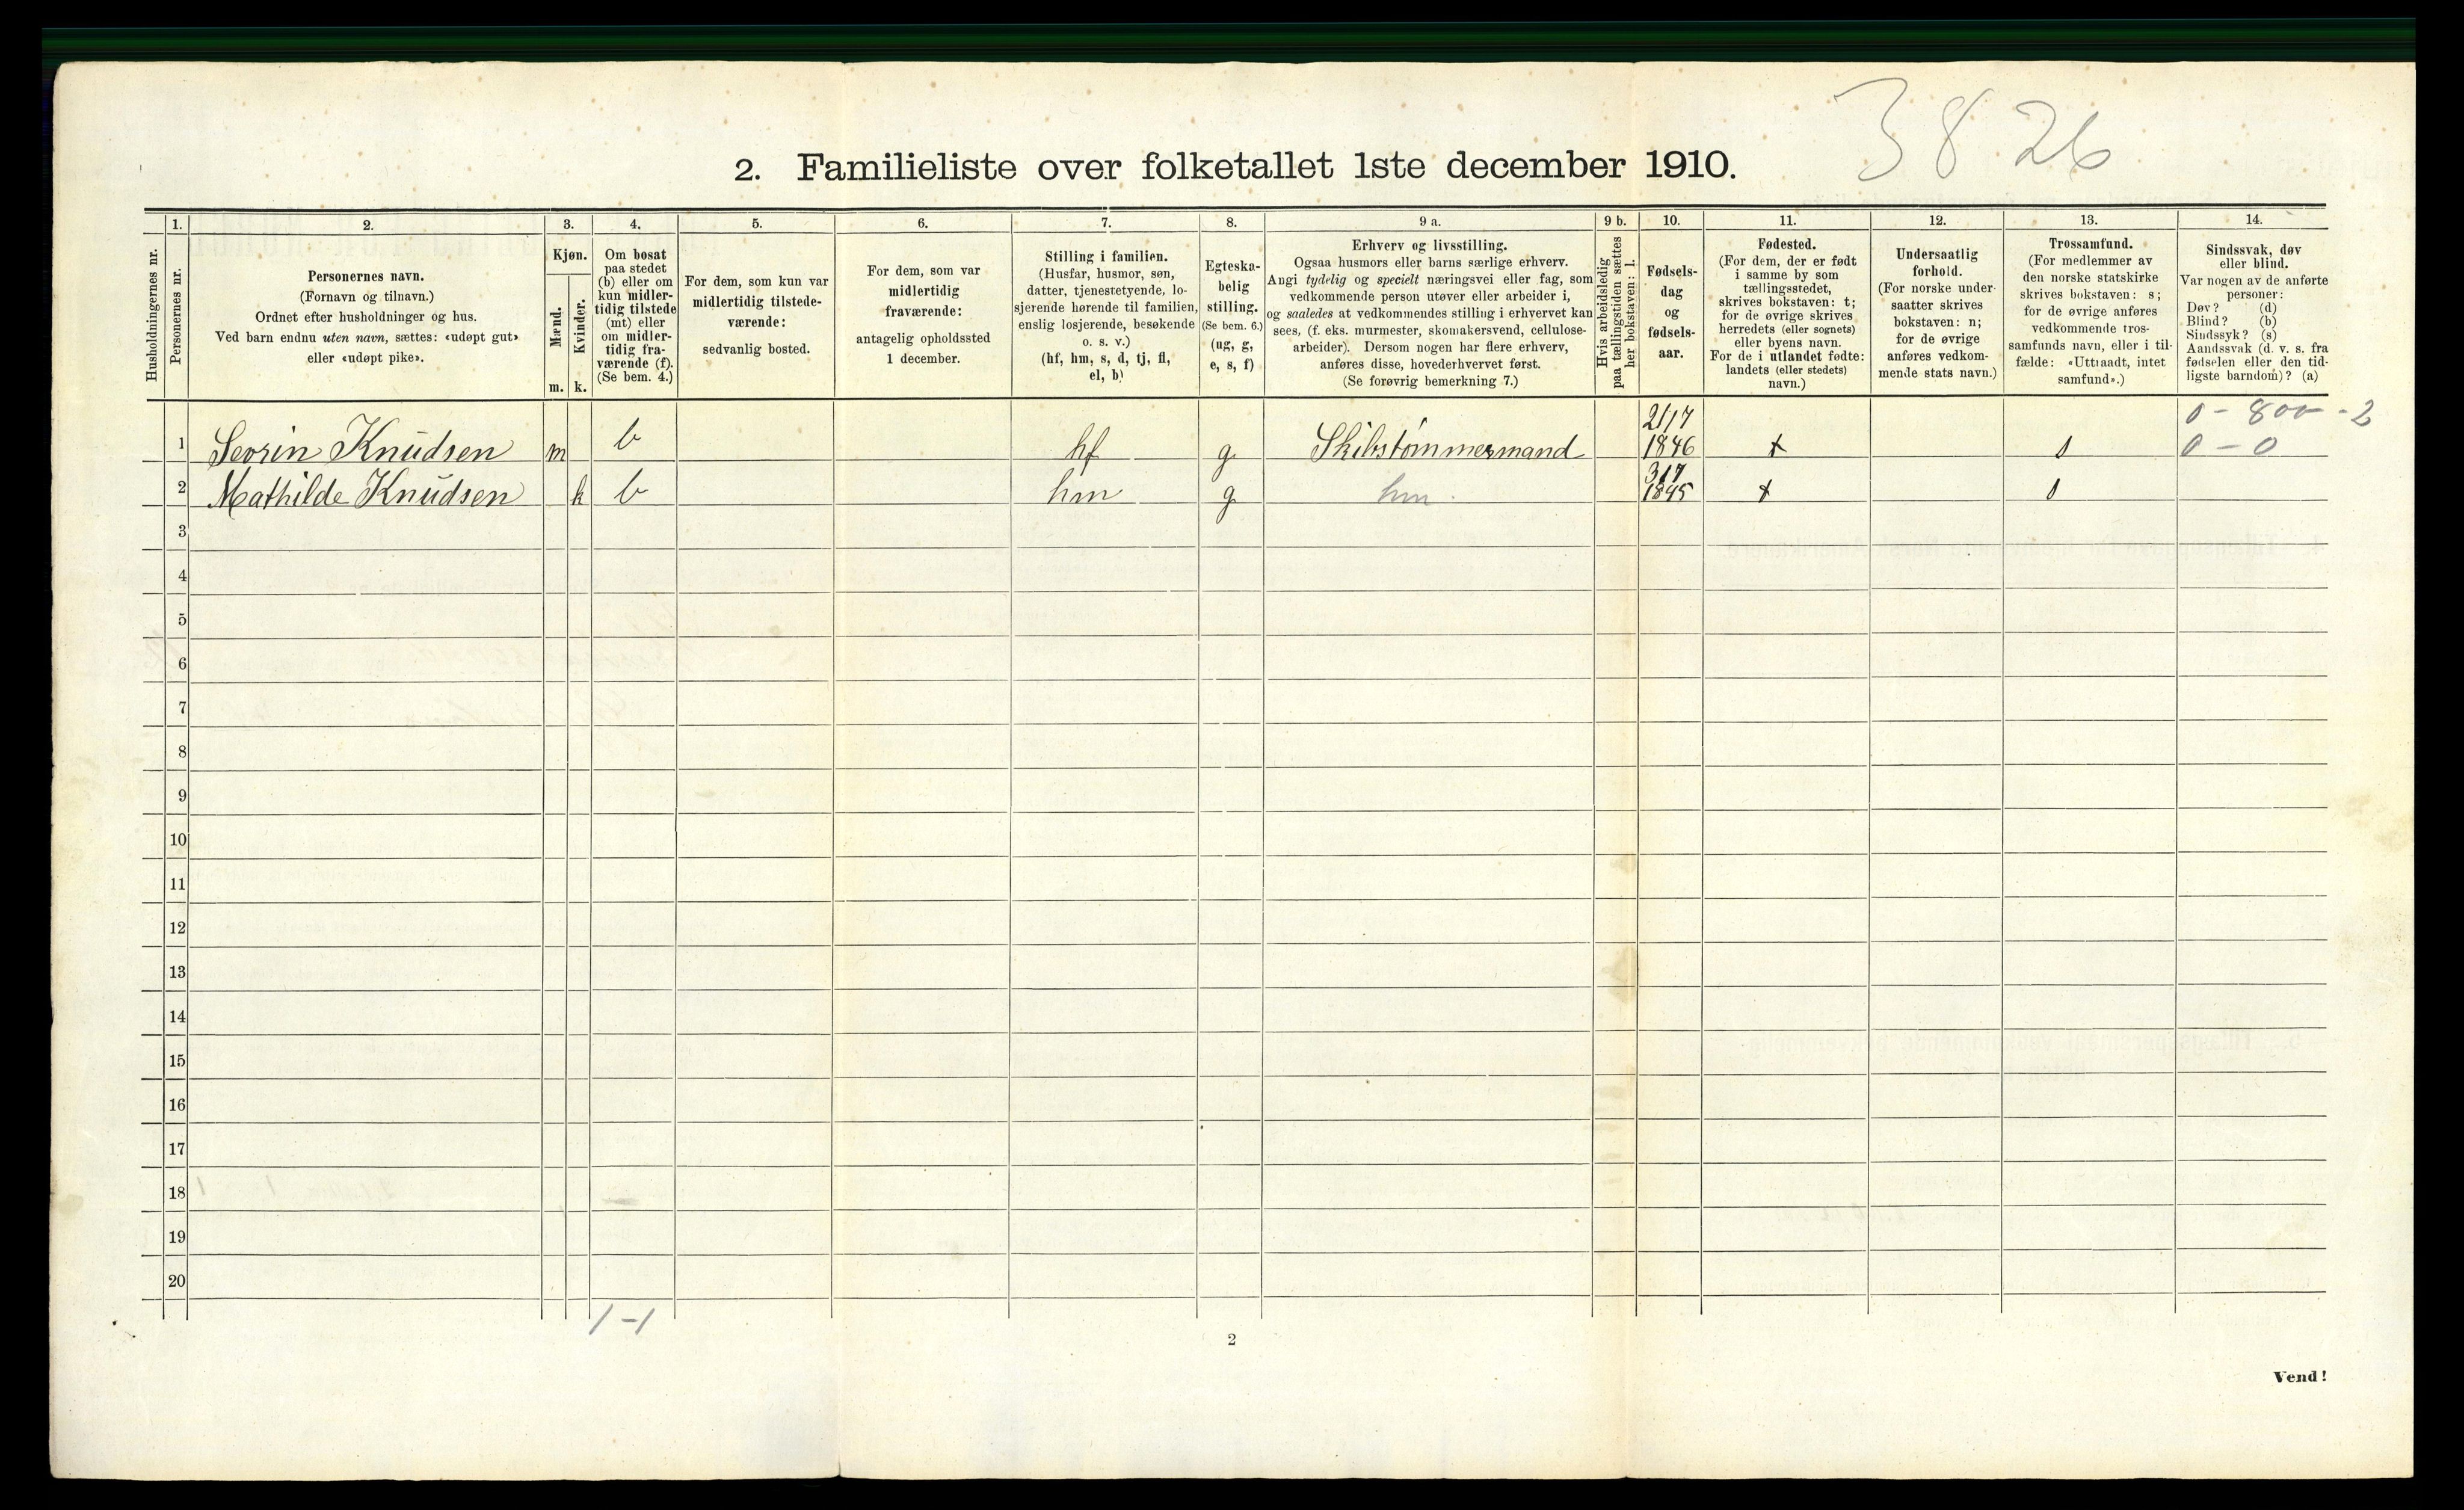 3826
2. Familieliste over folketallet 1ste december 1910.
Husholdningernes nr.
1.
Personernes nr.
2.
Personernes navn.
(Fornavn og tilnavn.)
Ordnet efter husholdninger og hus.
Ved barn endnu uten navn, sættes: «udøpt gut»
eller «udøpt pike».
3.
Kjøn.
Mænd.
m.
Kvinder.
k.
4.
Om bosat
paa stedet
(b) eller om
kun midler-
tidig tilstede
(mt) eller
om midler-
tidig fra-
værende (f).
(Se bem. 4.)
5.
For dem, som kun var
midlertidig tilstede-
værende:
sedvanlig bosted.
6.
For dem, som var
midlertidig
fraværende:
antagelig opholdssted
1 december.
7.
Stilling i familien.
(Husfar, husmor, søn,
datter, tjenestetyende, lo-
sjerende hørende til familien,
enslig losjerende, besøkende
o. s. v.)
(hf, hm, s, d, tj, fl,
el, b)
8.
Egteska-
belig
stilling.
(Se bem. 6.)
(ug, g,
e, s, f)
9 a.
Erhverv og livsstilling.
Ogsaa husmors eller barns særlige erhverv.
Angi tydelig og specielt næringsvei eller fag, som
vedkommende person utøver eller arbeider i,
og saaledes at vedkommendes stilling i erhvervet kan
sees, (f. eks. murmester, skomakersvend, cellulose-
arbeider). Dersom nogen har flere erhverv,
anføres disse, hovederhvervet først.
(Se forøvrig bemerkning 7.)
9 b.
Hvis arbeidsledig
paa tællingstiden sættes
her bokstaven: l.
10.
Fødsels-
dag
og
fødsels-
aar.
11.
Fødested.
(For dem, der er født
i samme by som
tællingsstedet,
skrives bokstaven: t;
for de øvrige skrives
herredets (eller sognets)
eller byens navn.
For de i utlandet fødte:
landets (eller stedets)
navn.)
12.
Undersaatlig
forhold.
(For norske under-
saatter skrives
bokstaven: n;
for de øvrige
anføres vedkom-
mende stats navn.)
13.
Trossamfund.
(For medlemmer av
den norske statskirke
skrives bokstaven: s;
for de øvrige anføres
vedkommende tros-
samfunds navn, eller i til-
fælde: «Uttraadt, intet
samfund».)
14.
Sindssvak, døv
eller blind.
Var nogen av de anførte
personer:
Døv? (d)
Blind? (b)
Sindssyk? (s)
Aandssvak (d. v. s. fra
fødselen eller den tid-
ligste barndom)? (a)
1 Sevrin Knudsen m b hf g Skibstømmermand 21/7 1846 t s 0 - 800 - 2
0 - 0
2 Mathilde Knudsen k b hm g hm. 31/7 1845 t s
3
4
5
6
7
8
9
10
11
12
13
14
15
16
17
18
19
20
1 - 1
2
Vend!